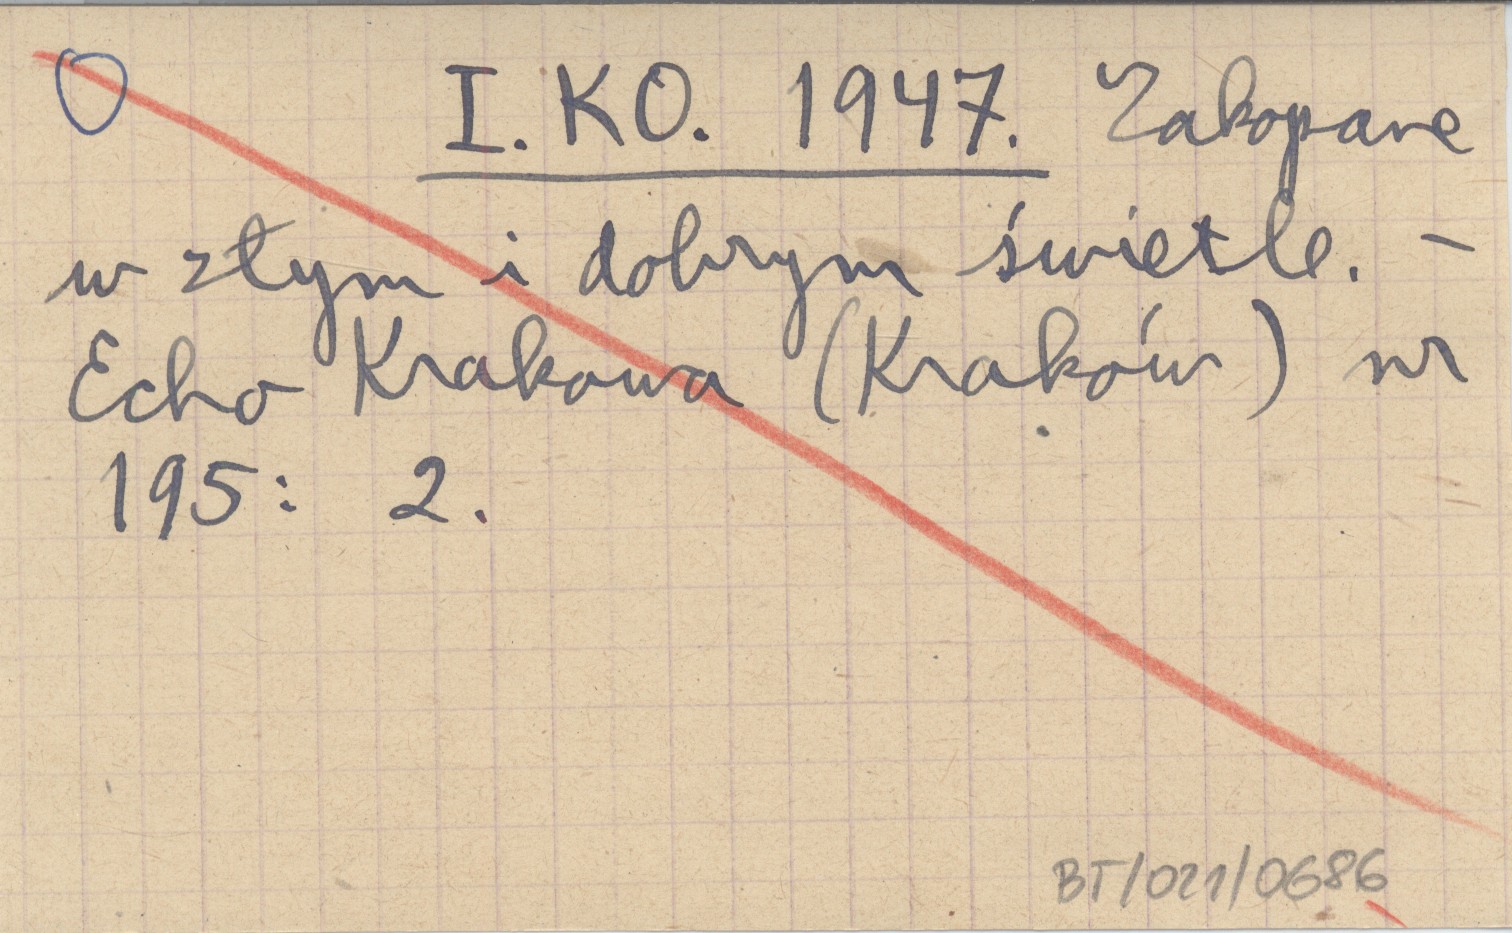 I. KO. 1947. Zakopane
w złym i dobrym świetle. -
Echo Krakowa (Kraków) nr
195: 2.
BT/021/0686